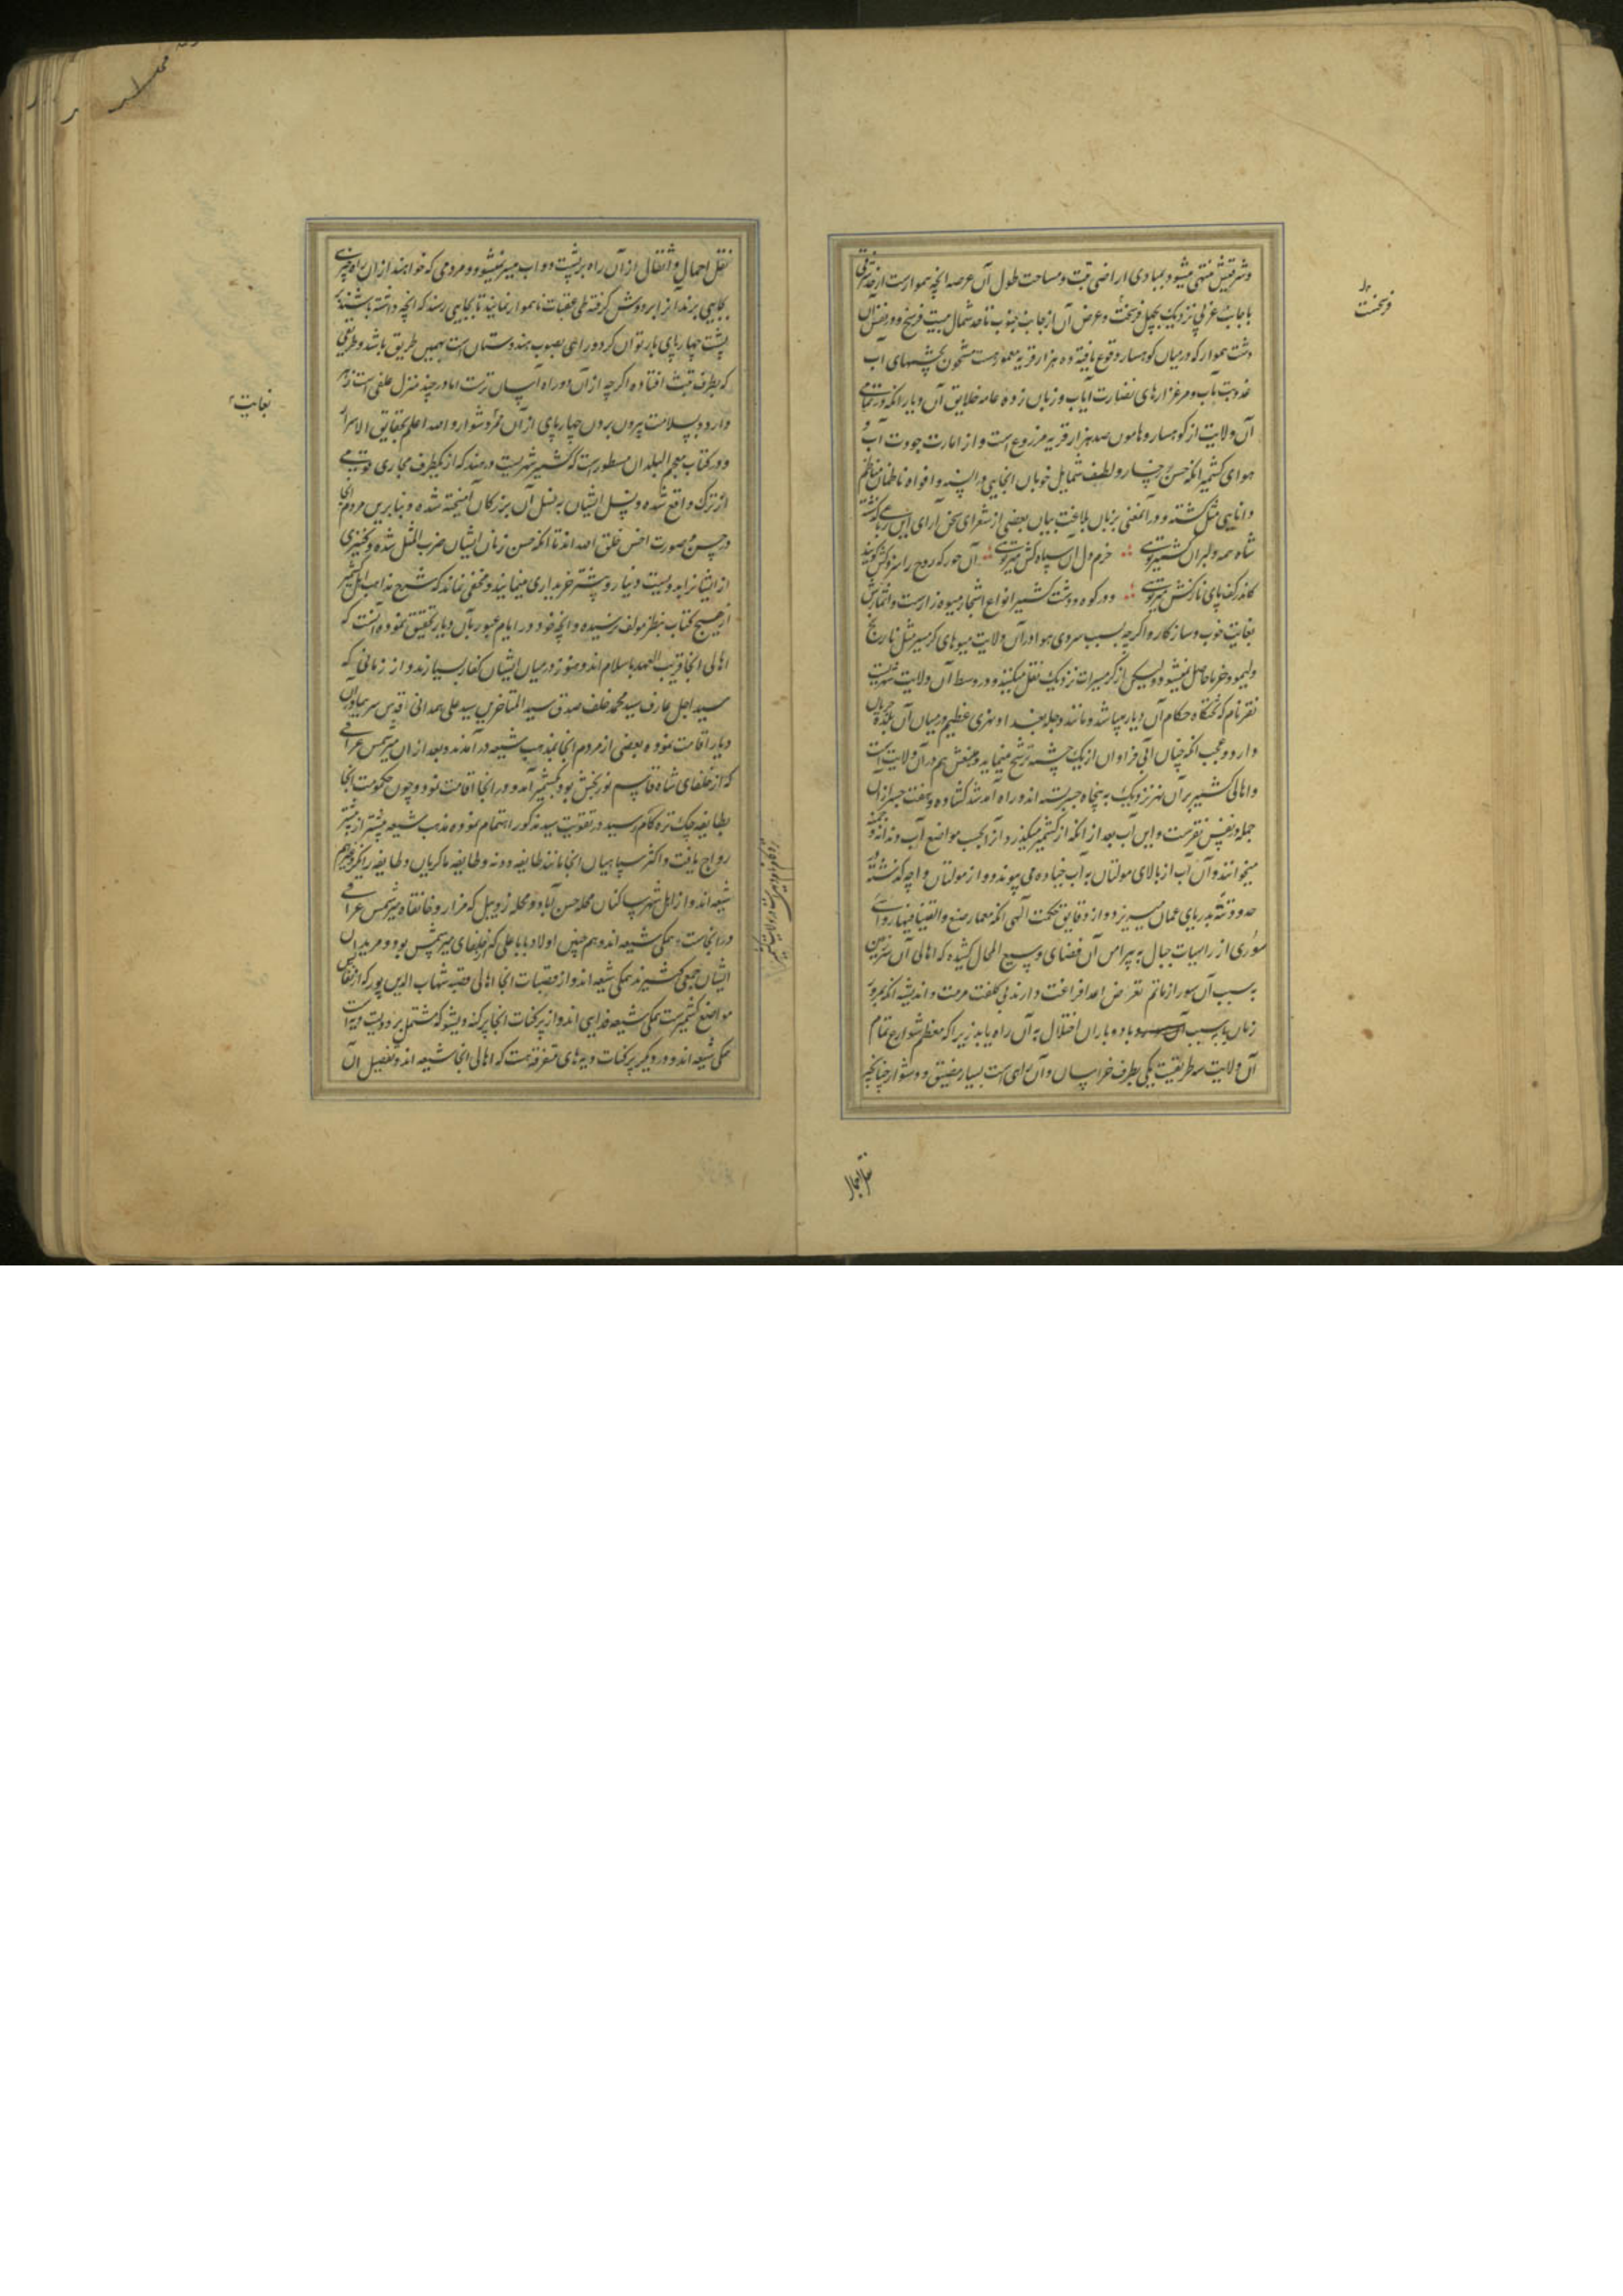 و شرقیش منتهی میشود بمبادی اراضی تبت و مساحت طول آن عرصه انچه هموارست از حد شرقی
با جانب غربی نزدیک بچهل فرسخست و عرض آن از جانب جنوب تا حد شمال بیست فرسخ و در نفس آن
دشت هموار که در میان کوهسار وقوع یافته ده هزار قریه معمورست مشحون بچشمهای آب
عذوبت مآب و مرغزارهای نضارت آیاب و زبان زده عامه خلایق آن دیار انکه در تمامی
آن ولایت از کوهسار و هامون صد هزار قریه مزروع است و از امارت جودت آب و
هوای کشمیر انکه حسن رخسار و لطف شمایل خوبان انجایی در السنه و افواه ناظمان مناظم
دانایی مثل کشته و در آنمعنی بزبان بلاغت بیان بعضی از شعرای سخن آرای این رباعی گذشته
شاه همه دلبران کشمیر تویی خرم دل آن سپاه کش میر تویی آن حور که روح را سزد کش گویند
کاندر کف پای نازکش میر تویی و در کوه و دشت کشمیر انواع اشجار میوه زارست و اثمارش
بغایت خوب و سازکار و اگرچه بسبب سردی هوا در آن ولایت میوهای کرمسیر مثل نارنج
و لیمو و خرما حاصل نمیشود ولیکن از کرمسیرات نزدیک نقل میکنند و در وسط آن ولایت شهریست
نقر نام که تختکاه حکام آن دیار میباشد و مانند دجله بغداد نهری عظیم در میان آن بلده جریان
دارد و عجب انکه چنان آبی فراوان از یک چشمه ترشح مینماید و منبعش هم در آن ولایت است
و اهالی کشمیر بر آن نهر نزدیک به پنجاه جسر بسته اند و راه آمد شد کشاده و هفت جسر از آن
جمله در نفس نقرست و این آب بعد از انکه از کشمیر میکذرد آنرا بحسب مواضع آب دندانه و
میخوانند و آن آب از بالای مولتان به آب جناده می پیوندد و از مولتان و اچه کذشته در
حدود تته بدریای عمان میریزد و از دقایق حکمت الهی انکه معمار صنع و القینا فیها رواسی
سوری از راسیات جبال به پیرامن آن فضای وسیع المحال کشیده که اهالی آن سرزمین
به سبب آن سور از ماتم تعرض اعدا فراغت دارند بی کلفت مرمت و اندیشه انکه بمرور
زمان یا به سبب باد و باران اختلال به آن راه یابد زیرا که معظم شوارع تمام
آن ولایت سه طریقست یکی بطرف خراسان و آن راهی است بسیار مضیق و دشوار چنانچه
نقل احمال
فرسخست
نقل احمال و اثقال از آن راه بر پشت دواب میسر نمیشود و مردمی که خواهند از ان راه چیزی
بجایی برند آنرا بر دوش کرفته طی عقبات ناهموار نمایند تا بجایی رسند که انچه داشته باشند بر
پشت چهارپای بار توان کرد و راهی بصوب هندوستان است بهمین طریق باشد و طریقی
که بطرف تبت افتاده اکرچه از آن دو راه آسان ترست اما در چند منزل علفی است زهر
دار و بسلامت بیرون بردن چهارپای از آن ممر دشوار و الله اعلم بحقایق الاسرار
و در کتاب معجم البلدان مسطور است که کشمیر شهریست در هند که از یکطرف مجاری قومی
از ترک واقع شده و نسل ایشان به نسل آن بزرکان آمیخته شده و بنابرین مردم انجا
در حسن و صورت احسن خلق الله اند تا انکه حسن زنان ایشان ضرب المثل شده و کنیزی
از ایشانرا به دویست دینار و بیشتر خریداری مینمایند و مخفی نماند که شرح مذاهب اهل کشمیر
از هیچ کتاب بنظر مولف نرسیده و انچه خود در ایام عبور بآن دیار تحقیق نموده آنست که
اهالی انجا قریب العهد باسلام اند و هنوز در میان ایشان کفار بسیارند و از زمانی که
سید اجل عارف سید محمد خلف صدق سید المتاخرین سید علی همدانی قدس سرهما در آن
دیار اقامت نموده بعضی از مردم انجا بمذهب شیعه در آمدند و بعد از ان میر شمس عراقی
که از خلفای شاه قاسم نوربخش بود بکشمیر آمد و در انجا اقامت نمود و چون حکومت انجا
بطایفه چک تره کام رسید در تقویت سید مذکور اهتمام نموده مذهب شیعه بیشتر از پیشتر
رواج یافت و اکثر سپاهیان انجا مانند طایفه دونه و طایفه ماکریان و طایفه راینکر و غیرهم
شیعه اند و از اهل شهر ساکنان محله حسن آباد و محله زدیبل که مزار و خانقاه میر شمس عراقی
در انجاست همکی شیعه اند و هم چنین اولاد بابا علی که از خلفای میر شمس بود و مریدان
ایشان جمعی کثیرند همکی شیعه اند و از قصبات انجا اهالی قصبه شهاب الدین پور که از نفایس
مواضع کشمیر ست همکی شیعه خدایی اند و از پرکنات انجا پرکنه ویشو که مشتمل بر دویست دیه است
همکی شیعه اند و در دیکر پرکنات دیه های متفرقه هست که اهالی انجا شیعه اند و تفصیل آن
بغایت